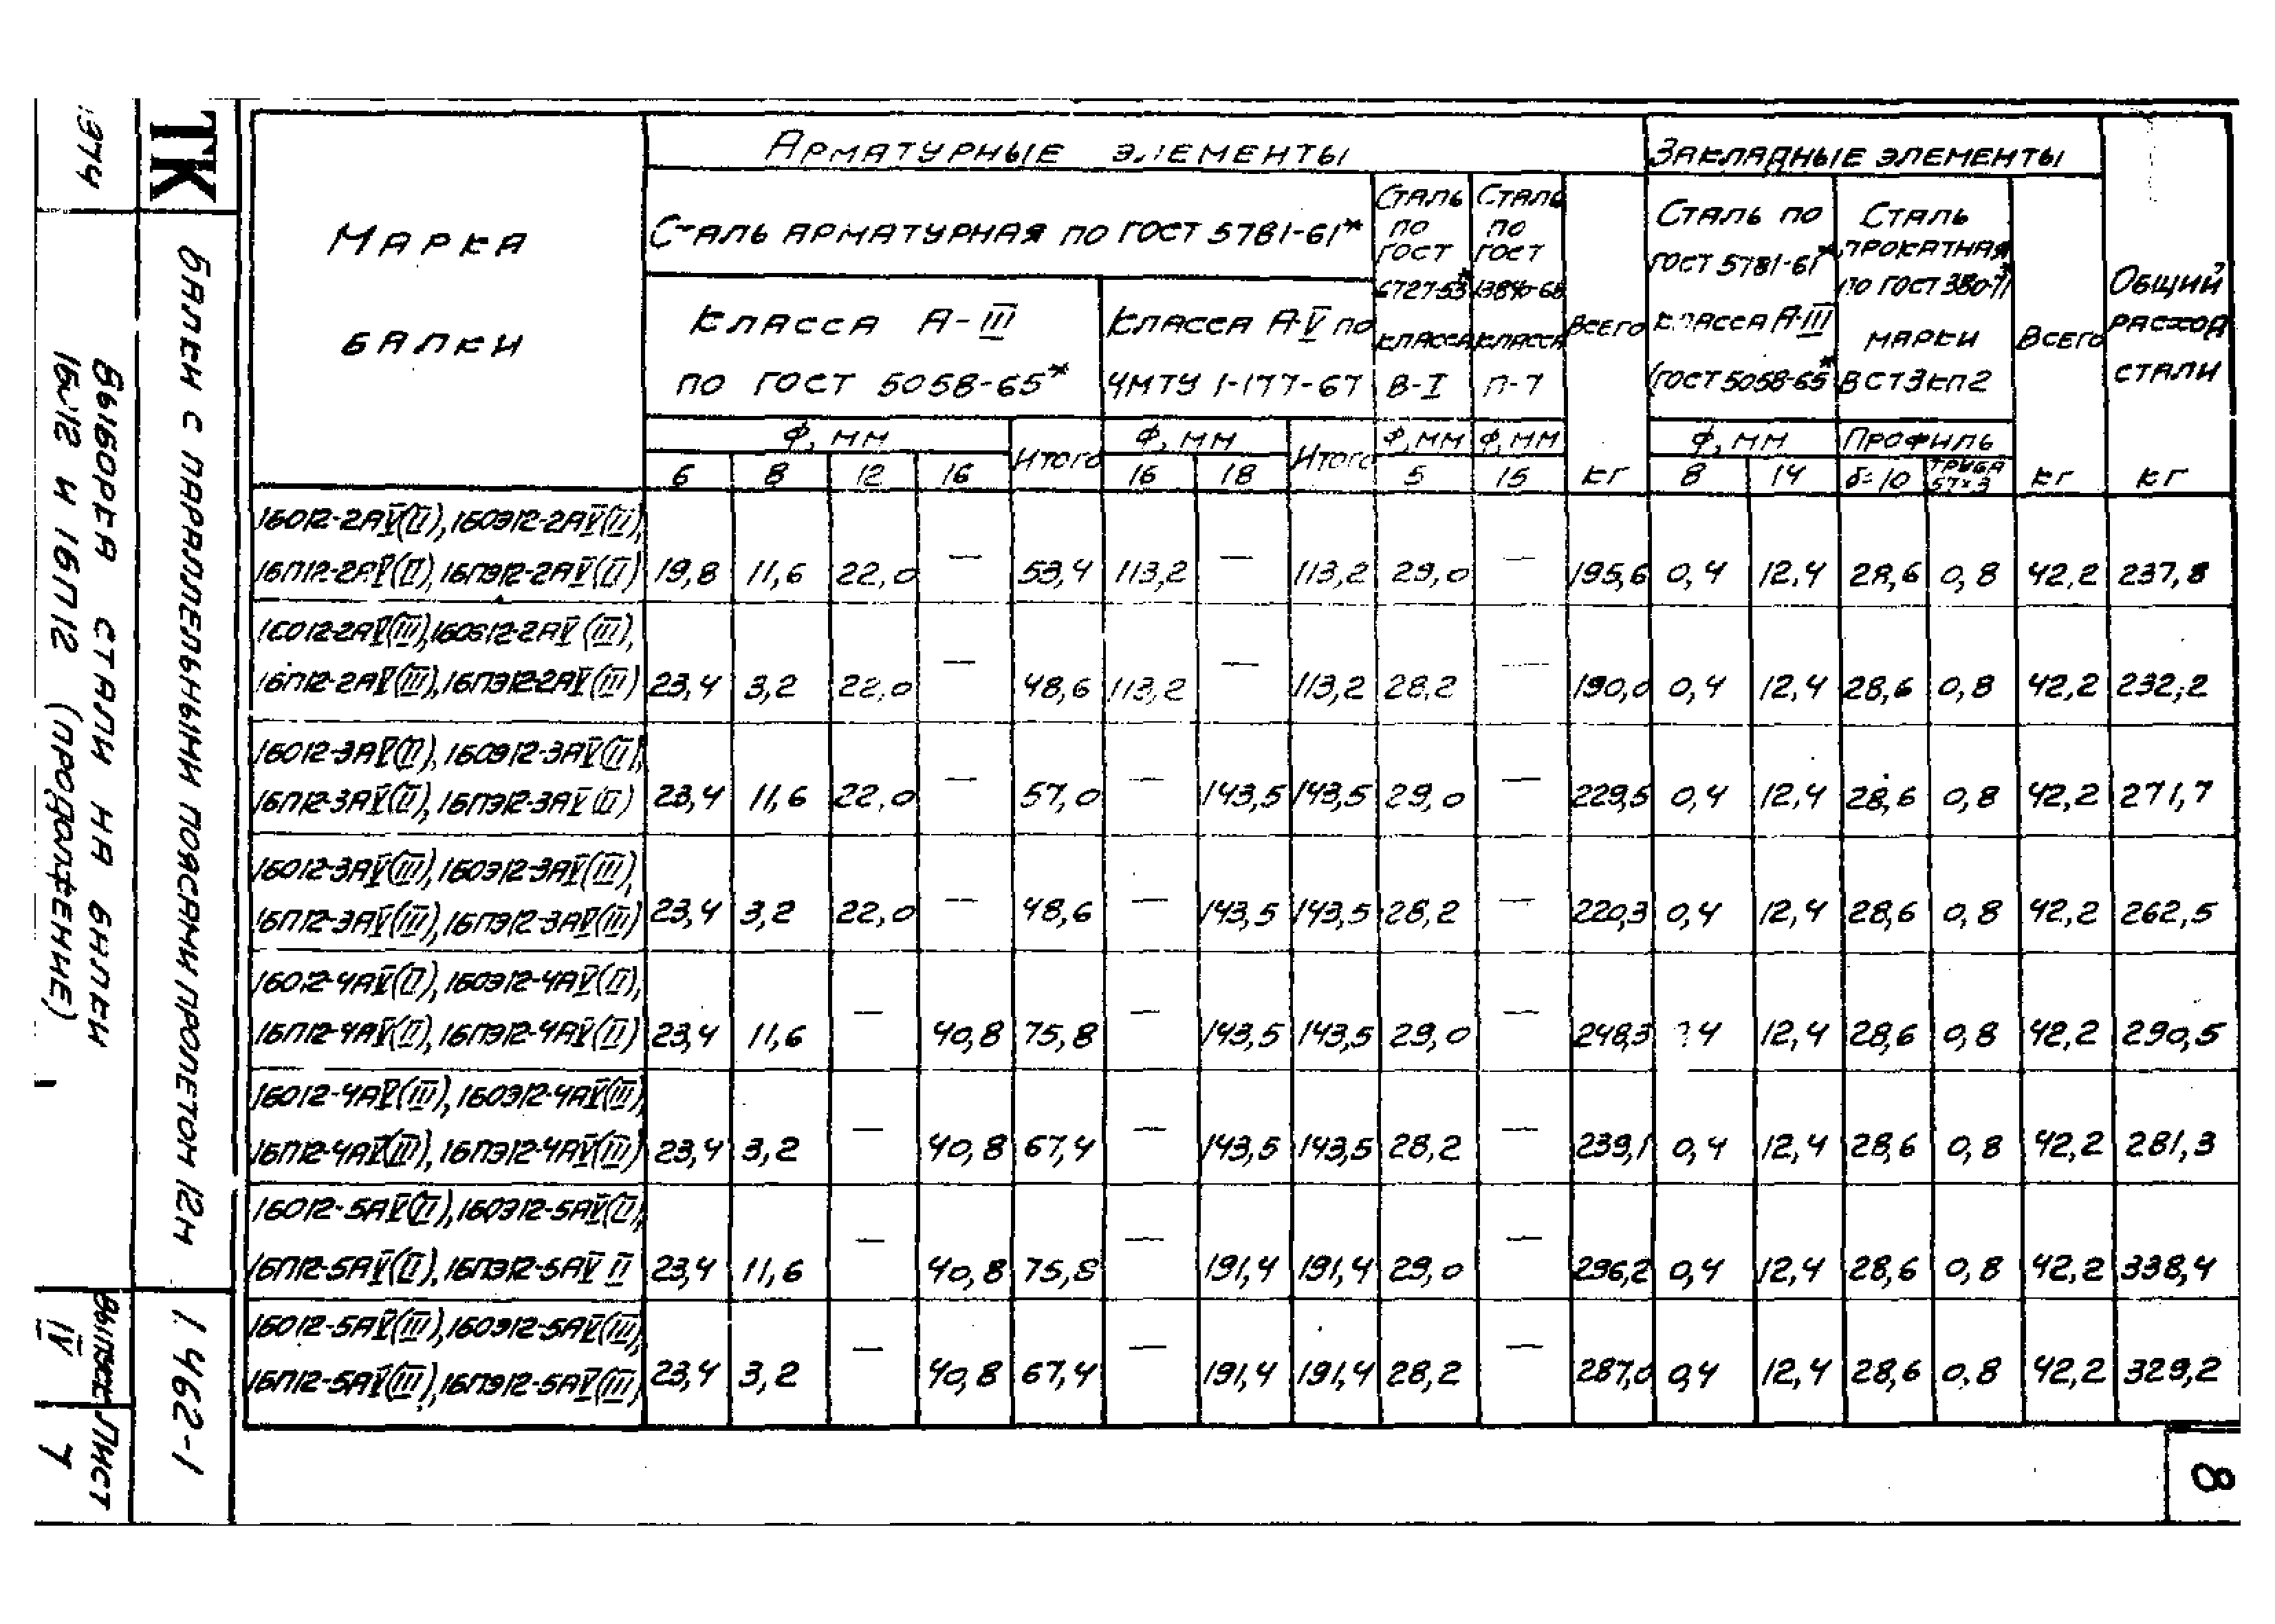 ТК
1974
Балки с параллельными поясами пролетом 12м
Выборка стали на балки
1Б012 и 1БП12 (продолжение)
1.462-1
Выпуск
IV
Лист
7
Марка
балки
Арматурные элементы
Закладные элементы
Общий
расход
стали
кг
Сталь арматурная по ГОСТ 5781-61*
Класса А-III
по ГОСТ 5058-65*
Класса А-V по
ЧМТУ 1-177-67
Сталь
по
ГОСТ
6727-53*
класса
В-I
Сталь
по
ГОСТ
13840-68
класса
П-7
Всего
кг
Сталь по
ГОСТ 5781-61*
класса А-III
(ГОСТ 5058-65*
Сталь
прокатная
по ГОСТ 380-71*
марки
ВСт3кп2
Всего
кг
Ф, мм Итого Ф, мм Итого Ф, мм Ф, мм Ф, мм Профиль
6 8 12 16 16 18 5 15 8 14 δ=10 труба 57×3
1Б012-2АV(II), 1Б0Э12-2АV(II),
1БП12-2АV(II), 1БПЭ12-2АV(II) 19,8 11,6 22,0 — 53,4 113,2 — 113,2 29,0 — 195,6 0,4 12,4 28,6 0,8 42,2 237,8
1Б012-2АV(III), 1Б0Э12-2АV(III),
1БП12-2АV(III), 1БПЭ12-2АV(III) 23,4 3,2 22,0 — 48,6 113,2 — 113,2 28,2 — 190,0 0,4 12,4 28,6 0,8 42,2 232,2
1Б012-3АV(II), 1Б0Э12-3АV(II),
1БП12-3АV(II), 1БПЭ12-3АV(II) 23,4 11,6 22,0 — 57,0 — 143,5 143,5 29,0 — 229,5 0,4 12,4 28,6 0,8 42,2 271,7
1Б012-3АV(III), 1Б0Э12-3АV(III),
1БП12-3АV(III), 1БПЭ12-3АV(III) 23,4 3,2 22,0 — 48,6 — 143,5 143,5 28,2 — 220,3 0,4 12,4 28,6 0,8 42,2 262,5
1Б012-4АV(II), 1Б0Э12-4АV(II),
1БП12-4АV(II), 1БПЭ12-4АV(II) 23,4 11,6 — 40,8 75,8 — 143,5 143,5 29,0 — 248,3 12,4 28,6 0,8 42,2 290,5
1Б012-4АV(III), 1Б0Э12-4АV(III),
1БП12-4АV(III), 1БПЭ12-4АV(III) 23,4 3,2 — 40,8 67,4 — 143,5 143,5 28,2 — 239,1 0,4 12,4 28,6 0,8 42,2 281,3
1Б012-5АV(II), 1Б0Э12-5АV(II),
1БП12-5АV(II), 1БПЭ12-5АV II 23,4 11,6 — 40,8 75,8 — 191,4 191,4 29,0 — 296,2 0,4 12,4 28,6 0,8 42,2 338,4
1Б012-5АV(III), 1Б0Э12-5АV(III),
1БП12-5АV(III), 1БПЭ12-5АV(III) 23,4 3,2 — 40,8 67,4 — 191,4 191,4 28,2 — 287,0 0,4 12,4 28,6 0,8 42,2 329,2
8